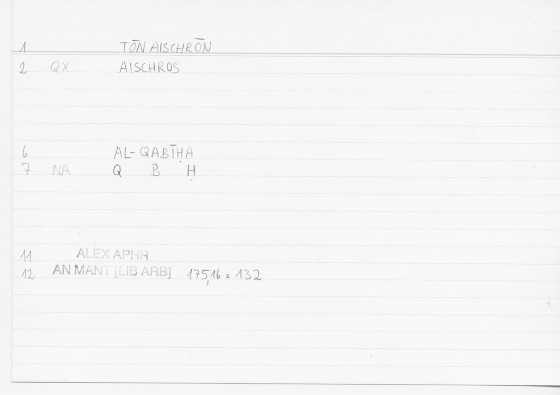 1 TŌN AISCHRŌN
2 QX AISCHROS
6 AL-QABĪḤA
7 NA Q B Ḥ
11 ALEX APHR
12 AN MANT [LIB ARB] 175,16 = 132